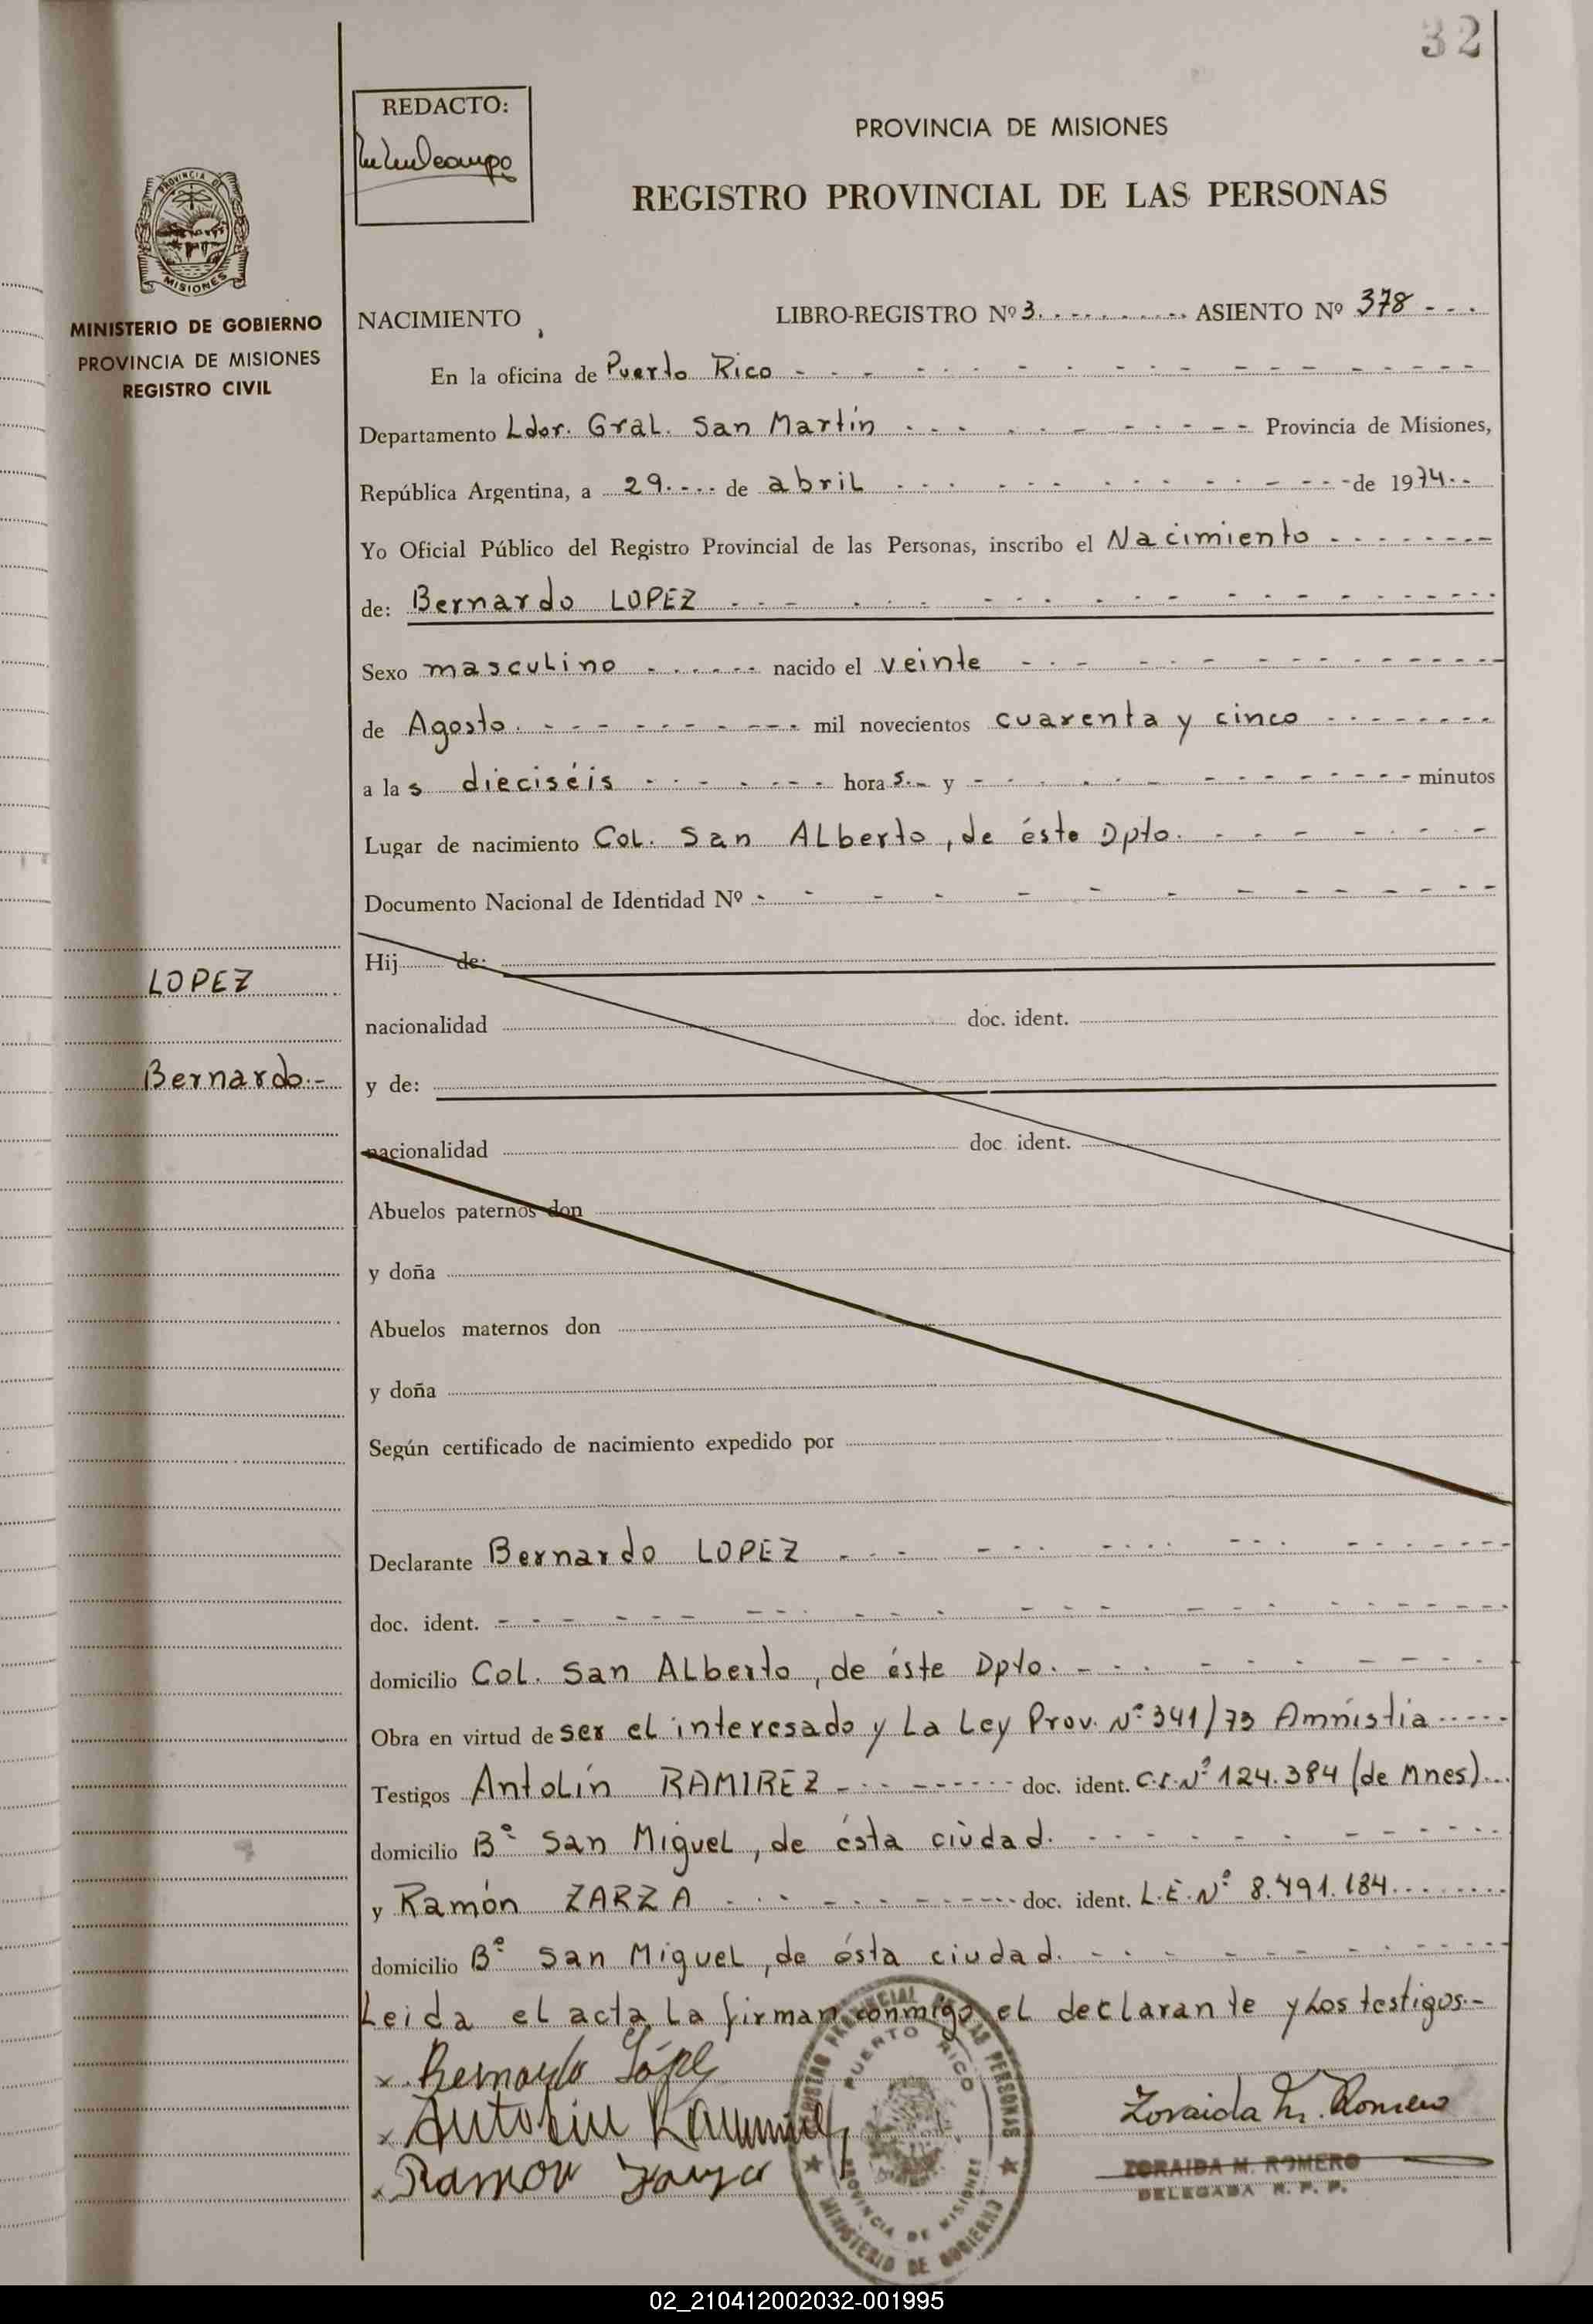 32
REDACTO:
PROVINCIA DE MISIONES
REGISTRO PROVINCIAL DE LAS PERSONAS
PROVINCIA DE
MISIONES
MINISTERIO DE GOBIERNO
PROVINCIA DE MISIONES
REGISTRO CIVIL
NACIMIENTO LIBRO-REGISTRO Nº 3. ASIENTO Nº 378
En la oficina de Puerto Rico
Departamento Ldor. Gral. San Martín Provincia de Misiones,
República Argentina, a 29 de abril de 1974
Yo Oficial Público del Registro Provincial de las Personas, inscribo el Nacimiento
de: Bernardo LOPEZ
Sexo masculino nacido el veinte
de Agosto mil novecientos cuarenta y cinco
a las dieciséis horas y minutos
Lugar de nacimiento Col. San Alberto, de éste Dpto.
Documento Nacional de Identidad Nº
Hij de:
LOPEZ
nacionalidad doc. ident.
Bernardo.-
y de:
nacionalidad doc. ident.
Abuelos paternos don
y doña
Abuelos maternos don
y doña
Según certificado de nacimiento expedido por
Declarante Bernardo LOPEZ
doc. ident.
domicilio Col. San Alberto, de éste Dpto.
Obra en virtud de ser el interesado y La Ley Prov. Nº 341/73 Amnístia
Testigos Antolín RAMIREZ doc. ident. C.I. Nº 124.384 (de Mnes)
domicilio Bº San Miguel, de ésta ciudad.
y Ramón ZARZA doc. ident. L.E. Nº
domicilio Bº San Miguel, de ésta ciudad.
Leida el acta La firman conmigo el declarante y Los testigos.-
x Bernardo López
x Antolin Ramirez
x Ramon Zarza
Zoraida M. Romero
ZORAIDA M. ROMERO
DELEGADA R. P. P.
REGISTRO PROVINCIAL DE LAS PERSONAS
PUERTO RICO
PROVINCIA DE MISIONES
MINISTERIO DE GOBIERNO
02_210412002032-001995